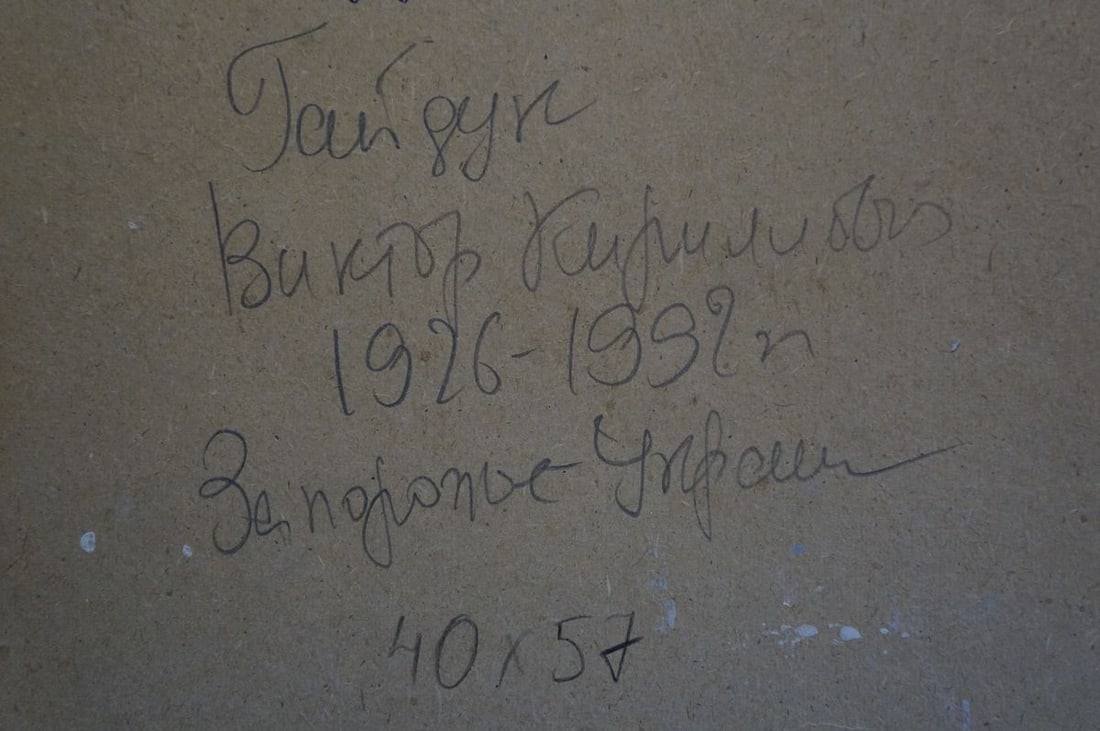 Гайдук
Виктор Кириллович
1926-1992 г
Запорожье Украина
40 х 57